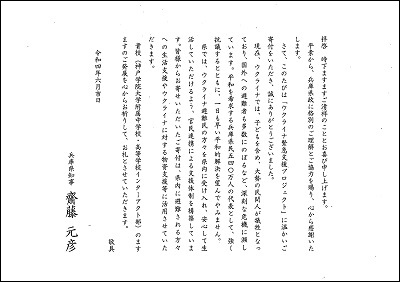 拝啓　時下ますますご清祥のこととお喜び申し上げます。
平素から、兵庫県政に格別のご理解とご協力を賜り、心から感謝いた
します。
さて、このたびは「ウクライナ緊急支援プロジェクト」に温かいご
寄付をいただき、誠にありがとうございました。
現在、ウクライナでは、子どもを含め、大勢の民間人が犠牲となっ
ており、国外への避難者も多数にのぼるなど、深刻な危機に瀕し
ています。平和を希求する兵庫県民五四〇万人の代表として、強く
抗議するとともに、一日も早い平和的解決を望んでやみません。
県では、ウクライナ避難民の方々を県内に受け入れ、安心して生
活していただけるよう、官民連携による支援体制を構築していま
す。皆様からお寄せいただいたご寄付は、県内に避難される方々
への生活支援やウクライナに対する物資支援等に活用させていた
だきます。
貴校（神戸学院大学附属中学校・高等学校インターアクト部）のます
ますのご発展を心からお祈りして、お礼とさせていただきます。
敬具
令和四年六月吉日
兵庫県知事　齋藤元彦